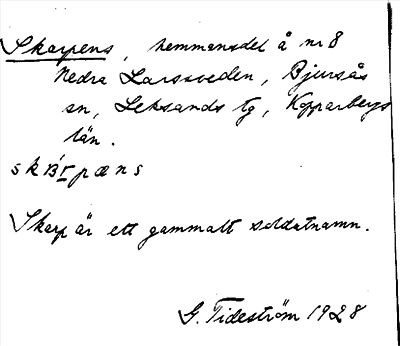 Skarpens, hemmansdel å nr 8
Nedra Larsveden, Bjursås
sn, Leksands tg, Kopparbergs
län.
skarpæns
Skarp är ett gammalt soldatnamn.
G. Tideström 1928